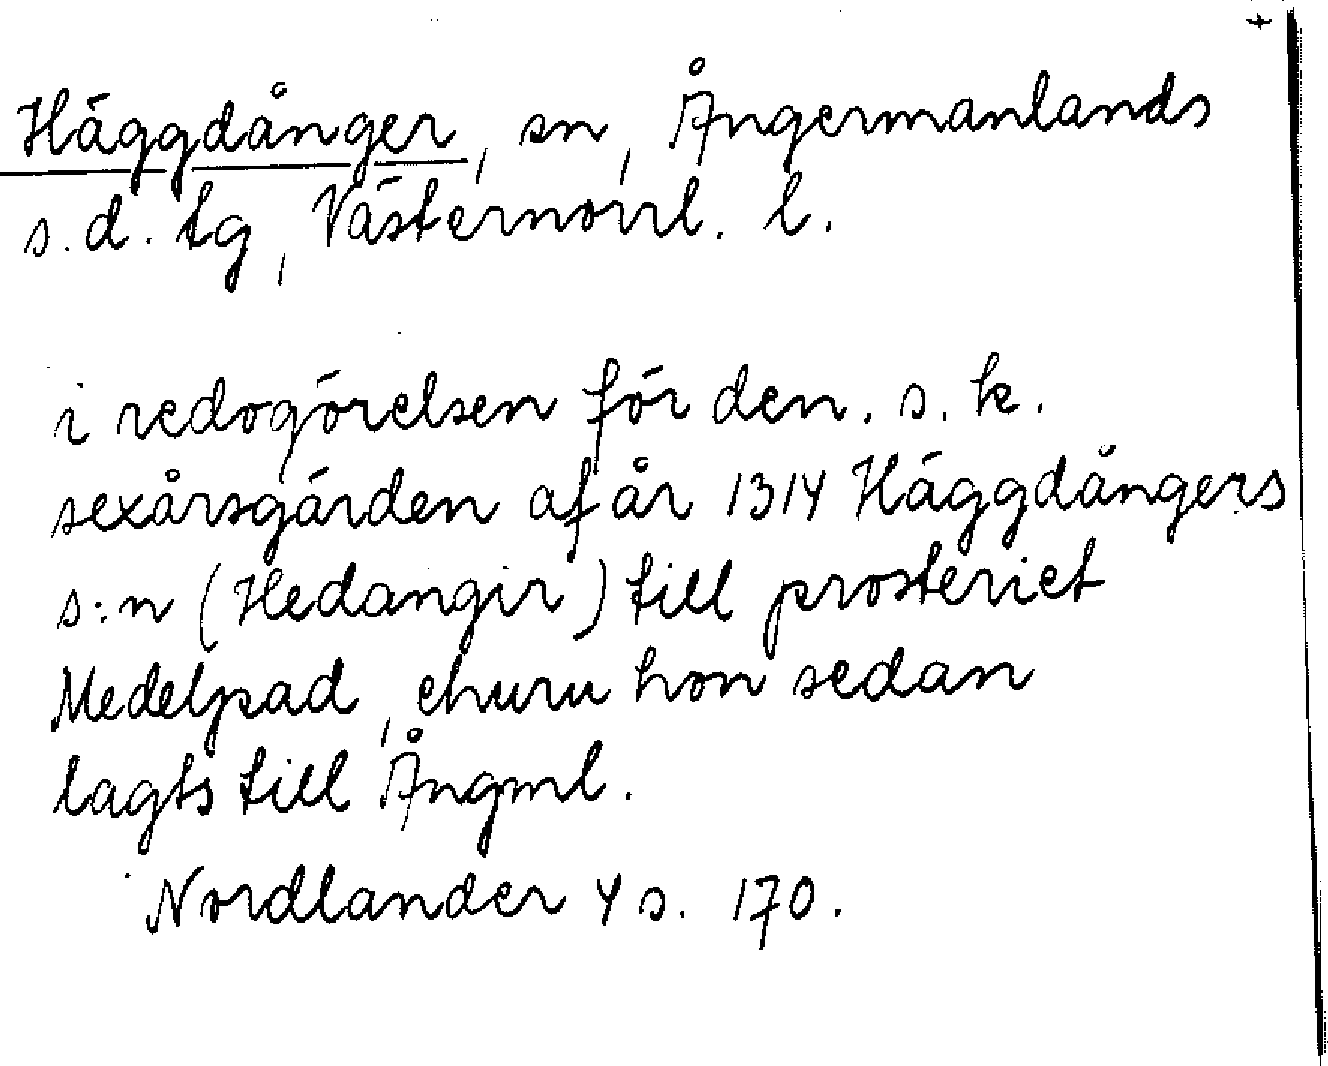 Häggdånger, sn, Ångermanlands
s.d. tg, Västernorrl. l.
i redogörelsen för den. s. k.
sexårsgärden af år 1314 Häggdångers
s:n (Hedangir) till prosteriet
Medelpad, ehuru hon sedan
lagts till Ångml.
Nordlander 4 s. 170.